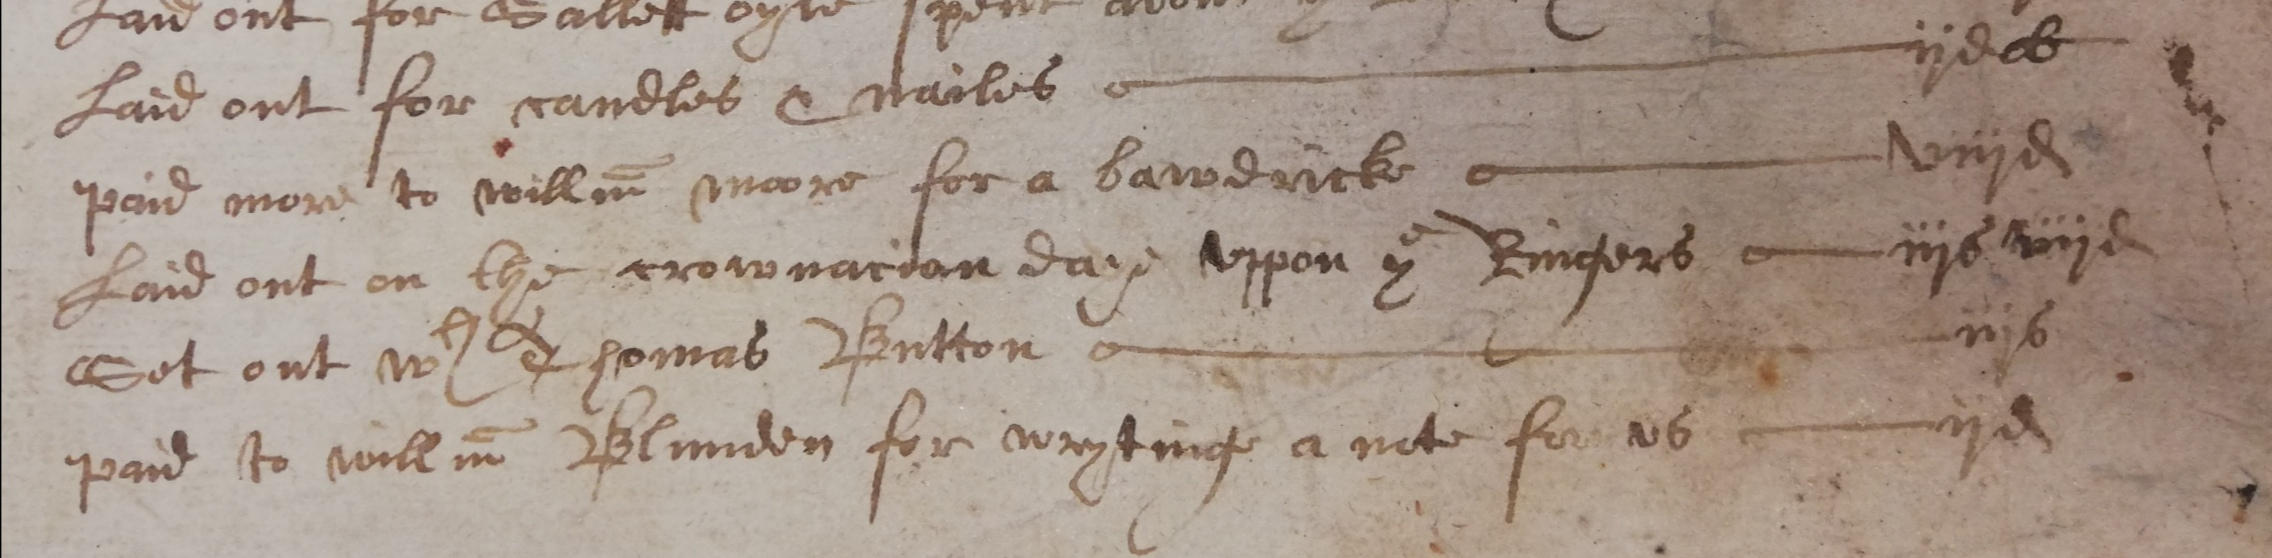 Laid out for Sallett oyle spent about y
Laid out for candles & nailes ijd ob
paid more to willm moore for a bawdricke viijd
Laid out on the crownacion daye vppon ye Ringers iijs viijd
Set out wth Thomas Button iijs
paid to willm Blunden for wrytinge a note for vs ijd